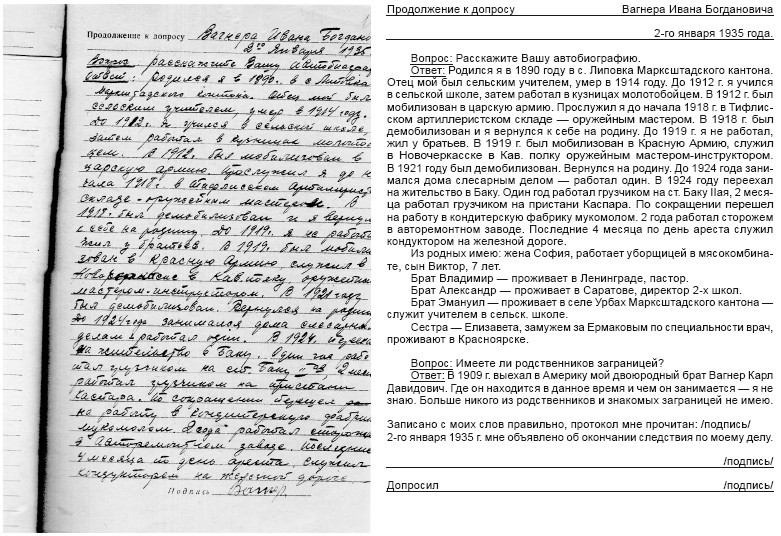 Продолжение к допросу Вагнера Ивана Богдано
2го Января 1935
Вопрос: расскажите Вашу автобиограф
Ответ: Родился я в 1890. в с. Липовка
Марксштадского кантона. Отец мой был
сельским учителем умер в 1914 году.
До 1912 г. я учился в сельской школе,
затем работал в кузницах молотобой
цем. В 1912. был мобилизован в
царскую армию. Прослужил я до на
чала 1918 г. в Тифлисском артиллерийст
складе – оружейным мастером. В
1918 г. был демобилизован и я вернул
к себе на родину. До 1919 г. я не работал
жил у братьев. В 1919 г. был мобили
зован в Красную Армию, служил в
Новочеркасске в Кав. полку оружейни
мастером-инструктором. В 1921 году
был демобилизован. Вернулся на родин
До 1924 года занимался дома слесарным
делом – работал один. В 1924. переехал
на жительство в Баку. Один год рабо
тал грузчиком на ст. Баку IIая 2 меся
работал грузчиком на пристани
Каспара. По сокращении перешел
на работу в кондитерскую фабрику
мукомолом. 2 года работал сторожем
в авторемонтном заводе. Последние
4 месяца по день ареста, служил
кондуктором на железной дороге
Подпись Вагнер.
Продолжение к допросу Вагнера Ивана Богдановича
2-го января 1935 года.
Вопрос: Расскажите Вашу автобиографию.
Ответ: Родился я в 1890 году в с. Липовка Марксштадского кантона.
Отец мой был сельским учителем, умер в 1914 году. До 1912 г. я учился
в сельской школе, затем работал в кузницах молотобойцем. В 1912 г. был
мобилизован в царскую армию. Прослужил я до начала 1918 г. в Тифлис-
ском артиллеристском складе — оружейным мастером. В 1918 г. был
демобилизован и я вернулся к себе на родину. До 1919 г. я не работал,
жил у братьев. В 1919 г. был мобилизован в Красную Армию, служил
в Новочеркасске в Кав. полку оружейным мастером-инструктором.
В 1921 году был демобилизован. Вернулся на родину. До 1924 года зани-
мался дома слесарным делом — работал один. В 1924 году переехал
на жительство в Баку. Один год работал грузчиком на ст. Баку IIая, 2 меся-
ца работал грузчиком на пристани Каспара. По сокращению перешел
на работу в кондитерскую фабрику мукомолом. 2 года работал сторожем
в авторемонтном заводе. Последние 4 месяца по день ареста служил
кондуктором на железной дороге.
Из родных имею: жена София, работает уборщицей в мясокомбина-
те, сын Виктор, 7 лет.
Брат Владимир — проживает в Ленинграде, пастор.
Брат Александр — проживает в Саратове, директор 2-х школ.
Брат Эмануил — проживает в селе Урбах Марксштадского кантона —
служит учителем в сельск. школе.
Сестра — Елизавета, замужем за Ермаковым по специальности врач,
проживают в Красноярске.
Вопрос: Имеете ли родственников заграницей?
Ответ: В 1909 г. выехал в Америку мой двоюродный брат Вагнер Карл
Давидович. Где он находится в данное время и чем он занимается — я не
знаю. Больше никого из родственников и знакомых заграницей не имею.
Записано с моих слов правильно, протокол мне прочитан: /подпись/
2-го января 1935 г. мне объявлено об окончании следствия по моему делу.
/подпись/
Допросил /подпись/